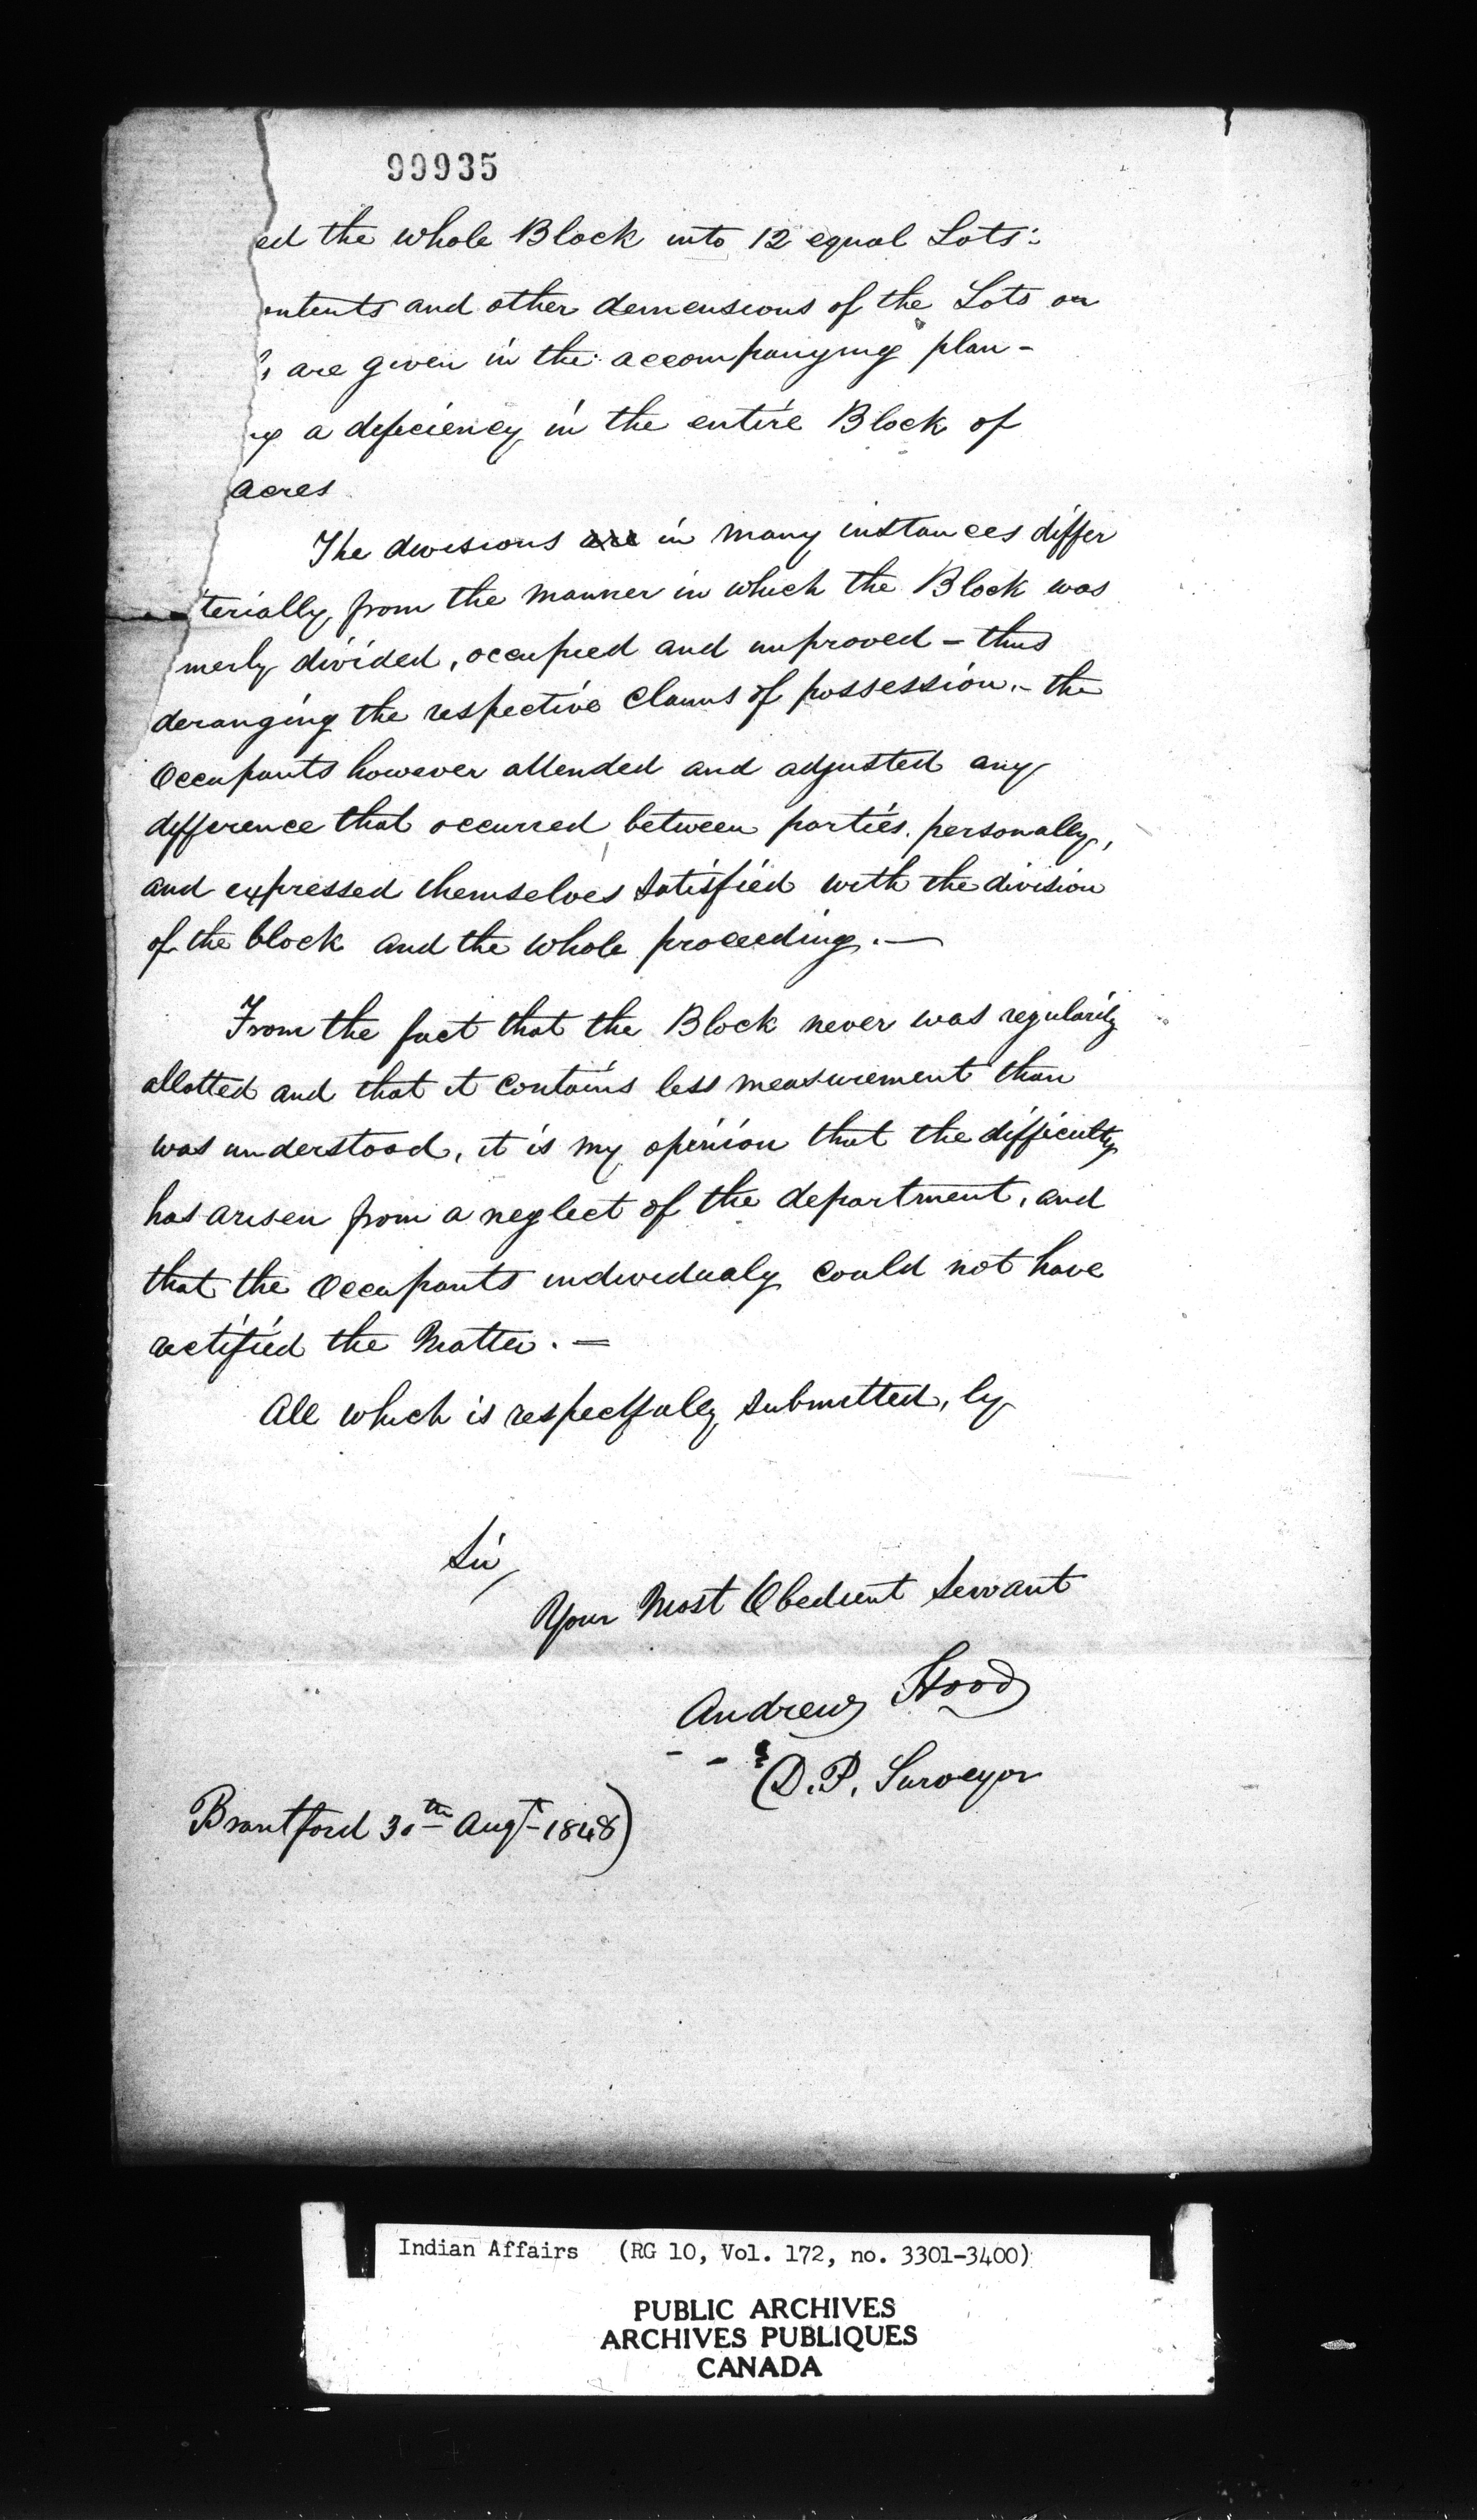 99935
ed the whole Block into 12 equal Lots:
ontents and other demensions of the Lots on
are given in the accompanying plan -
a defeciency in the entire Block of
acres
The devisions are in many instances differ
terially from the manner in which the Block was
merly divided, occupied and improved - thus
deranging the respective Claims of possession. - the
Occupants however attended and adjusted any
difference that occurred between parties personally,
and expressed themselves Satisfied with the division
of the block and the whole proceeding. —
From the fact that the Block never was regularily
allotted and that it Contains less measurement than
was understood, it is my opinion that the difficulty
has arisen from a neglect of the department, and
that the Occupants individualy could not have
rectified the Matter. —
All which is respectfully submitted, by
Sir,
Your Most Obedient Servant
Andrew Hood
(D. P. Surveyor
Brantford 30th Augt 1848)
Indian Affairs (RG 10, Vol. 172, no. 3301-3400)
PUBLIC ARCHIVES
ARCHIVES PUBLIQUES
CANADA